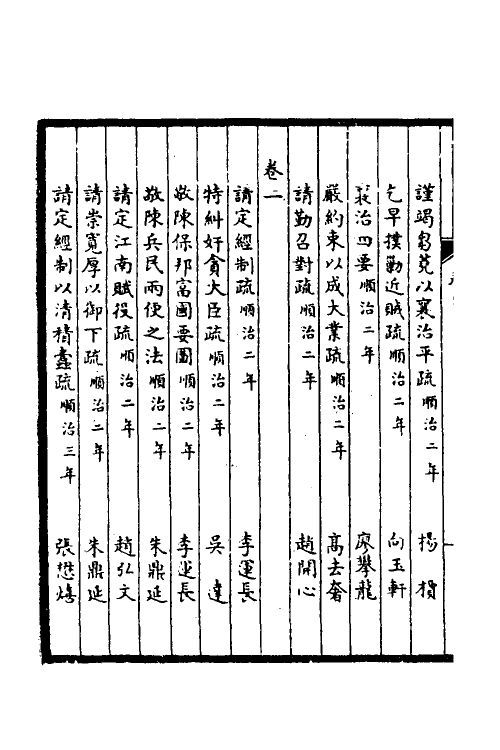 謹竭芻蕘以襄治平疏順治二年 楊檟
乞早撲勦近賊疏順治二年 向玉軒
襄治四要順治二年 廖攀龍
嚴約束以成大業疏順治二年 高去奢
請勤召對疏順治二年 趙開心
卷二
請定經制疏順治二年 李運長
特糾奸貪大臣疏順治二年 吳達
敬陳保邦富國要圖順治二年 李運長
敬陳兵民兩便之法順治二年 朱鼎延
請定江南賦役疏順治二年 趙弘文
請崇寬厚以御下疏順治二年 朱鼎延
請定經制以清積蠹疏順治三年 張懋熺